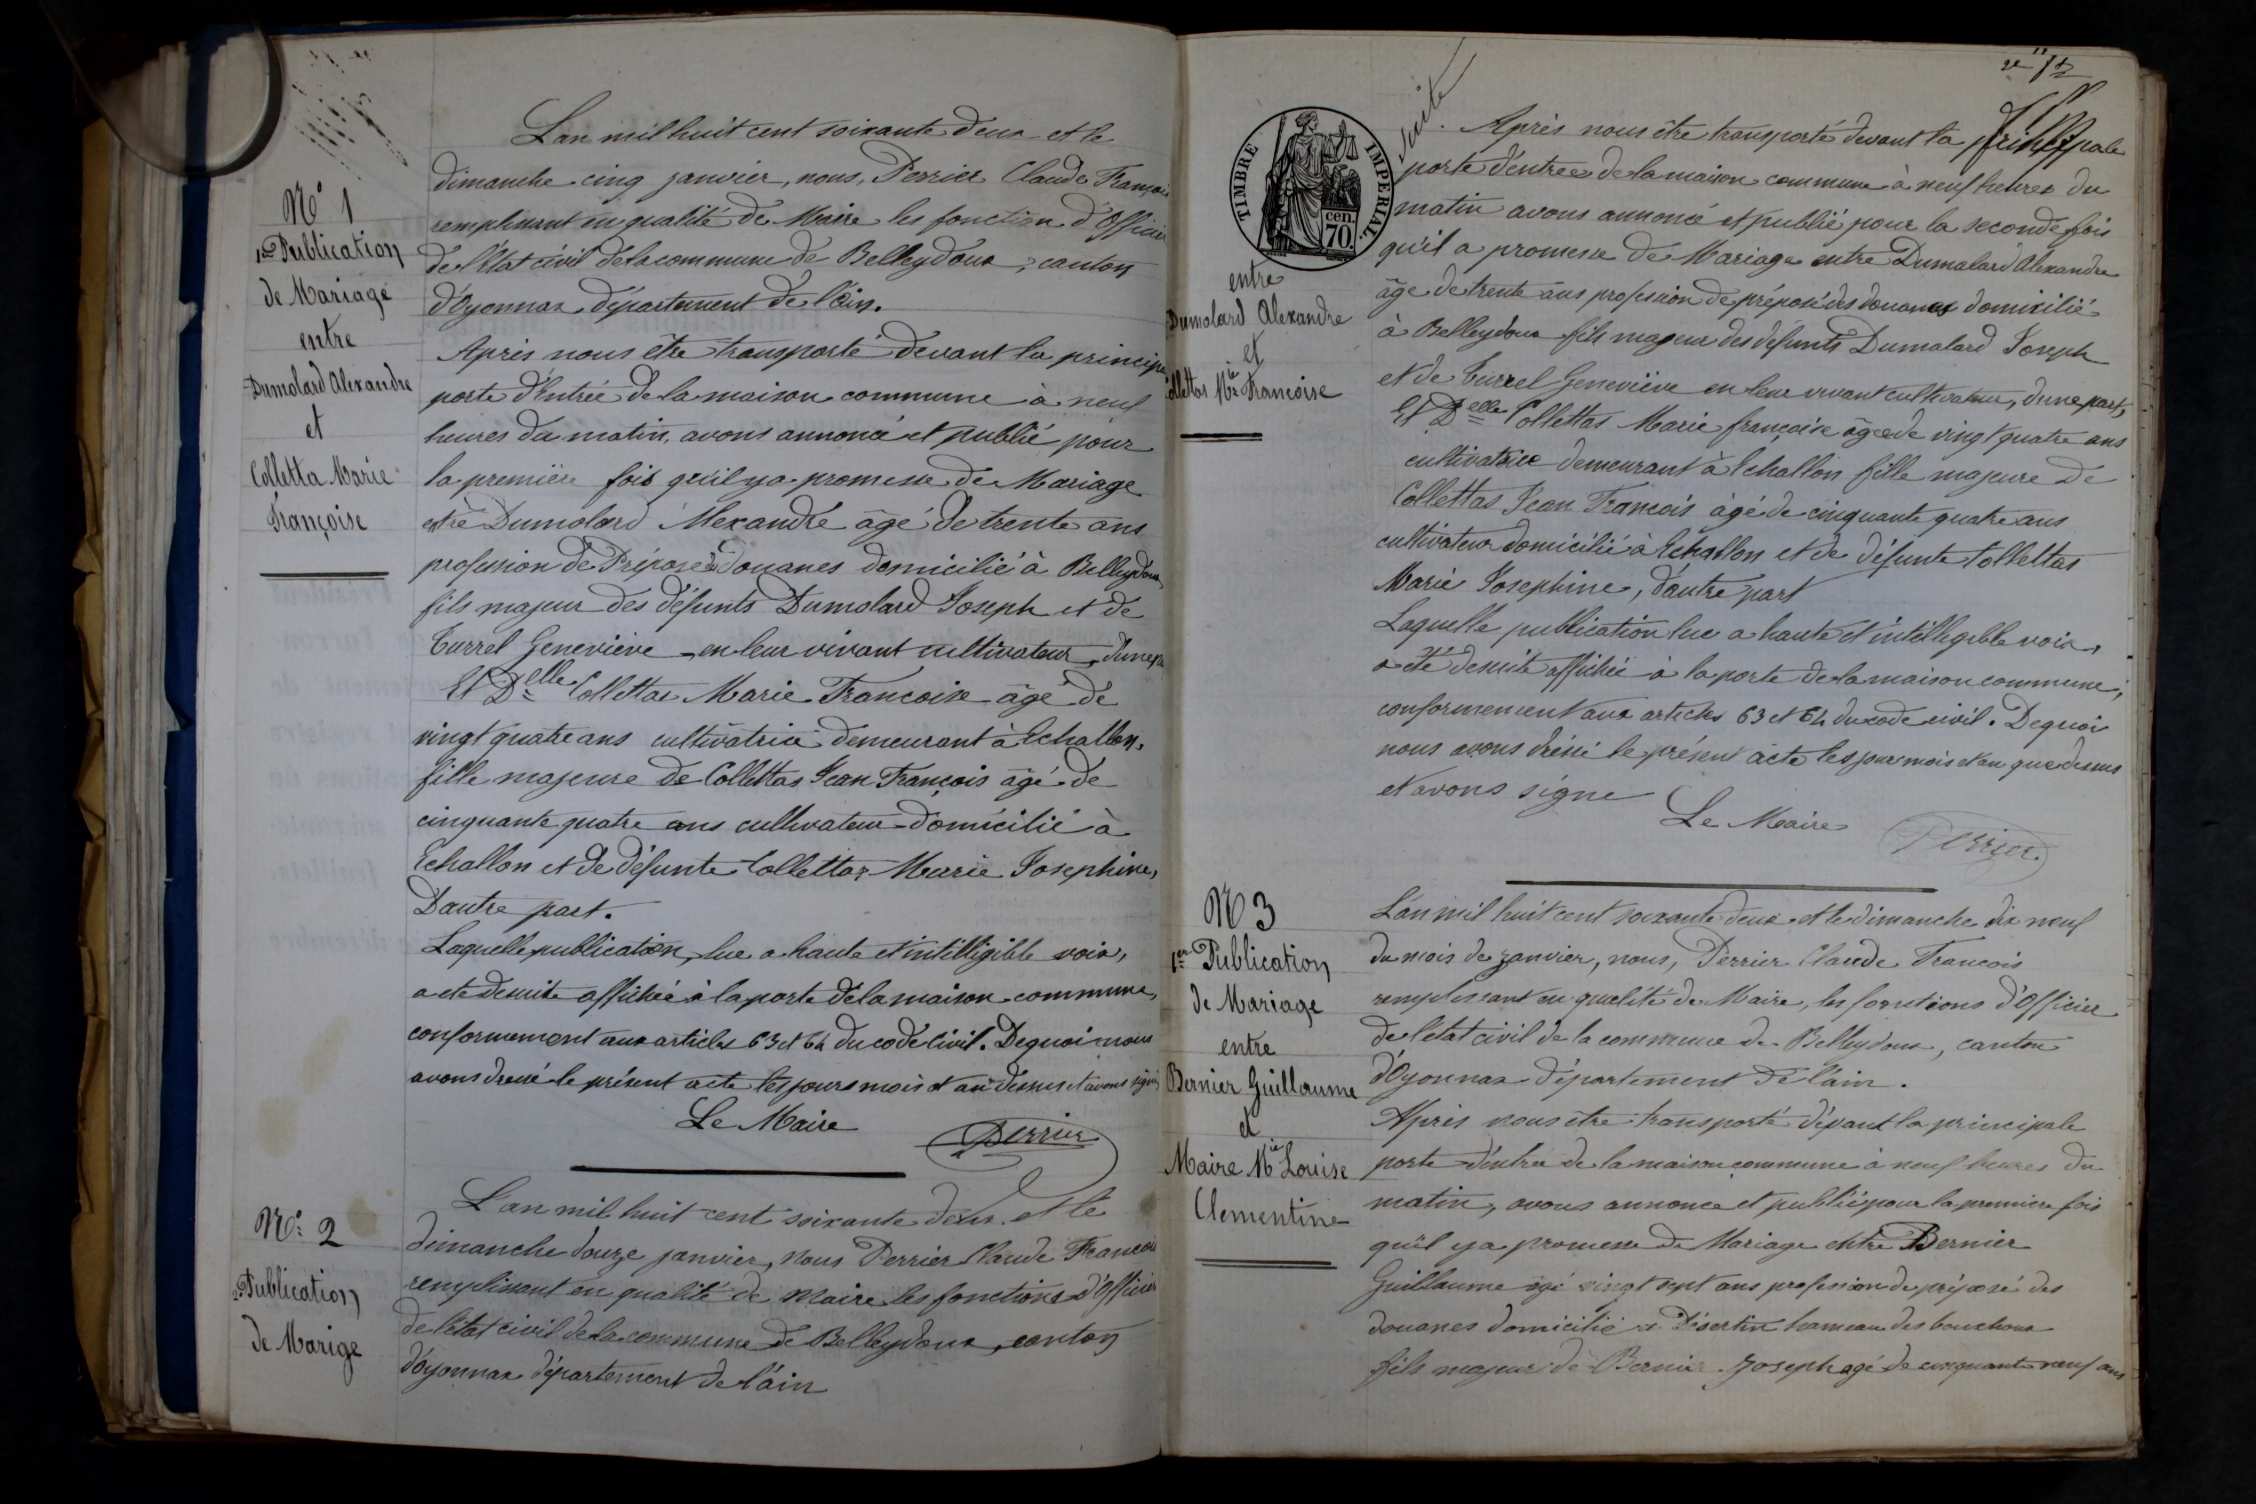 N° 1
1re Publication
de Mariage
entre
Dumolard Alexandre
et
Colletta Marie
Françoise
L'an mil huit cent soixante deux et le
dimanche cinq janvier, nous, Perrier Claude François
remplissant en qualité de Maire les fonction d'Officier
de l'état civil de la commune de Belleydoux, canton
d'Oyonnax département de l'Ain.
Après nous être transporté devant la principa
porte d'entrée de la maison commune à neuf
heures du matin, avons annoncé et publié pour
la première fois qu'il y a promesse de Mariage
entre Dumolard Alexandre âgé de trente ans
profession de Préposé des douanes domicilié à Belleydoux,
fils majeur des défunts Dumolard Joseph et de
Turrel Geneviève en leur vivant cultivateur, d'une pa
Et Delle Collettas Marie Francoise âgé de
vingt quatre ans cultivatrice demeurant à Echallon,
fille majeure de Collettas Jean François âgé de
cinquante quatre ans cultivateur domicilié à
Echallon et de défunte Collettaz Marie Josephine,
D'autre part.
Laquelle publication, lue a haute et intelligible voix,
a ete de suite affichée à la porte de la maison commune,
conformement aux articles 63 et 64 du code Civil. De quoi nous
avons dressé le présent acte les jours mois et an dessus et avons signé
Le Maire
Perrier
N° 2
2e Publication
de Marige
L'an mil huit cent soixante deux et le
dimanche douze janvier, nous Perrier Claude Francois
remplissant en qualité de Maire les fonctions d'Officier
de l'état civil de la commune de Belleydoux, canton
d'Oyonnax département de l'ain
TIMBRE IMPERIAL
70 cen.
Suite
entre
Dumolard Alexandre
et
Collettas Mie Francoise
Après nous être transporté devant la principale
porte d'entree de la maison commune à neuf heures du
matin avons annoncé et publié pour la seconde fois
qu'il a promesse de Mariage entre Dumolard Alexandre
âge de trente ans profession de préposé des douanes domicilié
à Belleydoux fils majeur des défunts Dumolard Joseph
et de Turrel Geneviève en leur vivant cultivateur, d'une part,
Et Delle Collettas Marie françoise âgée de vingt quatre ans
cultivatrice demeurant à Echallon fille majeure de
Collettas Jean Francois âgé de cinquante quatre ans
cultivateur domicilié à Echallon et de défunte Collettas
Marie Josephine, d'autre part
Laquelle publication lue a haute et intelligible voix,
a été de suite affichée à la porte de la maison commune,
conformement aux articles 63 et 64 du code civil. De quoi
nous avons dressé le présent acte les jour mois et an que dessus
et avons signe
Le Maire
Perrier
N 3
1re Publication
de Mariage
entre
Bernier Guillaume
et
Maire Mie Louise
Clementine
L'an mil huit cent soixante deux et le dimanche dix neuf
du mois de janvier, nous, Perrier Claude Francois
remplissant en qualité de Maire, les fonctions d'Officier
de l'état civil de la commune de Belleydoux, canton
d'Oyonnax département de l'ain.
Après nous etre transporté dévant la principale
porte d'entrée de la maison commune à neuf heures du
matin, avons annonce et publié pour la premiere fois
qu'il y a promesse de Mariage entre Bernier
Guillaume âgé vingt sept ans profession de préposé des
douanes domicilié a Désertin hameau des bouchoux
fils majeur de Bernier Joseph agé de cinquante neuf ans